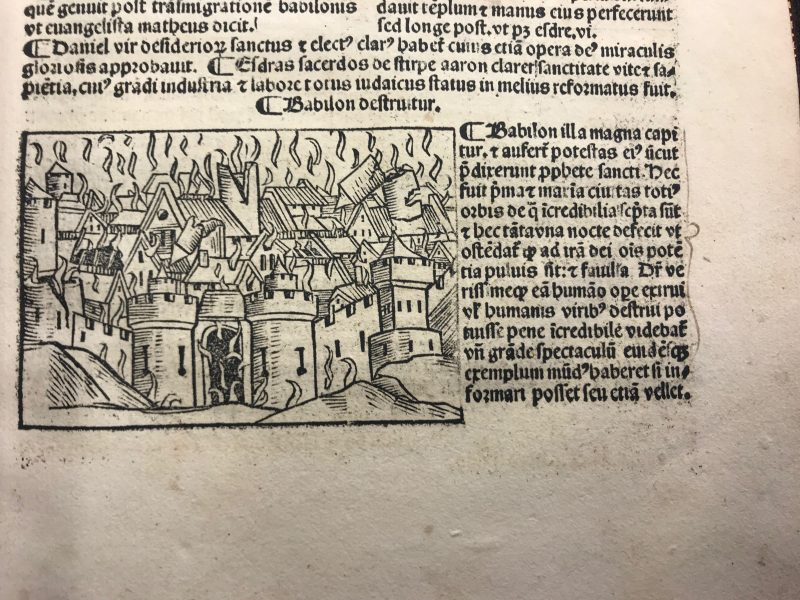 quē genuit post trāsmigrationē babilonis
vt euangelista matheus dicit.
dauit tēplum et manus eius perfecerunt
sed longe post. vt pꝫ esdre. vi.
¶ Daniel vir desiderioꝝ sanctus ⁊ electꝰ clarꝰ habet̄ cuius etiā opera deꝰ miraculis
gloriosis approbauit. ¶ Esdras sacerdos de stirpe aaron claret sanctitate vite ⁊ sa-
piētia, cuiꝰ grādi industria ⁊ labore totus iudaicus status in melius reformatus fuit.
¶ Babilon destruitur.
¶ Babilon illa magna capi
tur. ⁊ aufert̄ potestas eiꝰ
p̄dixerunt prophete sancti. Hec
fuit p̄ma ⁊ maxīa ciuitas totiꝰ
orbis de q̄ īcredibilia scp̄ta sūt
⁊ hec tāta vna nocte defecit vt
ostēdat̄ ꝙ ad irā dei oīs potē
tia puluis sit: ⁊ fauilla Dr̄ ve
riss meqꝫ eā humāo ope extrui
vl̓ humanis viribꝰ destrui po
tuisse pene īcredibile videbat̄
vn̄ grāde spectaculū
exemplum mūdꝰ haberet si in-
formari posset seu etiā vellet.